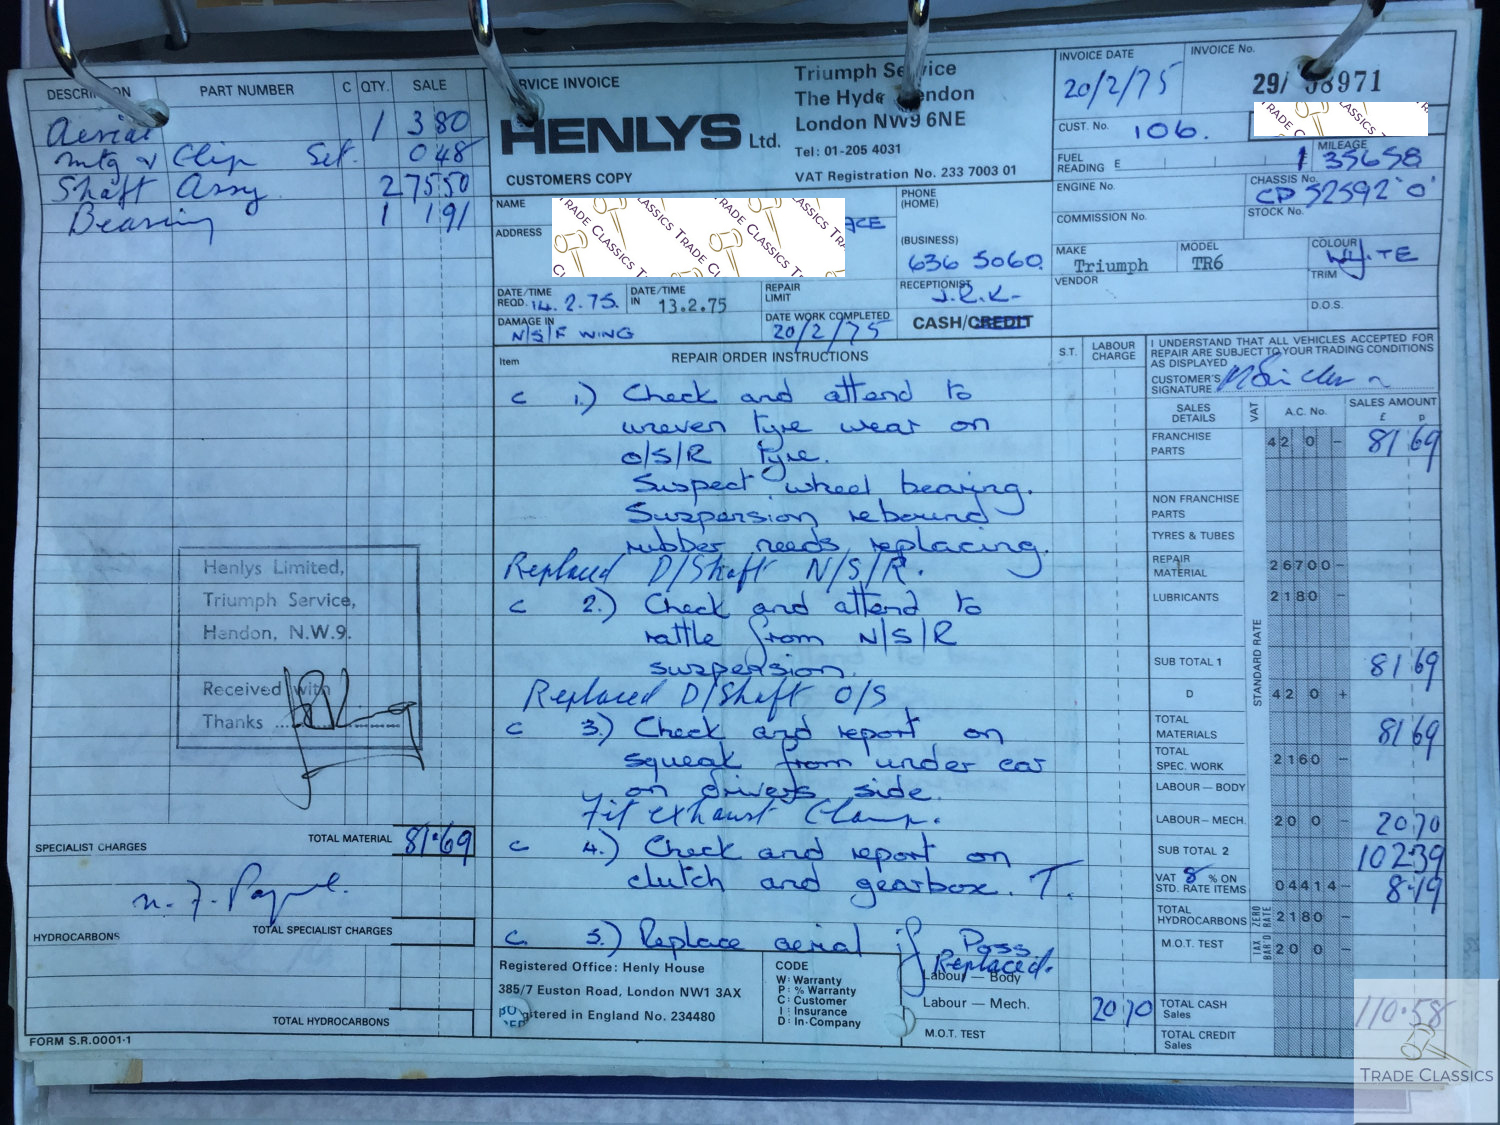 DESCRIPTION PART NUMBER C QTY. SALE
Aerial 1 3 80
Mtg & Clip Set. 0 48
Shaft Assy 2 75 50
Bearing 1 1 91
Henlys Limited,
Triumph Service,
Hendon, N.W.9.
Received with
Thanks
TOTAL MATERIAL 81.69
SPECIALIST CHARGES
TOTAL SPECIALIST CHARGES
HYDROCARBONS
TOTAL HYDROCARBONS
FORM S.R.0001·1
SERVICE INVOICE
HENLYS Ltd.
CUSTOMERS COPY
Triumph Service
The Hyde Hendon
London NW9 6NE
Tel: 01-205 4031
VAT Registration No. 233 7003 01
INVOICE DATE 20/2/75
INVOICE No. 29/ 08971
CUST. No. 106.
FUEL READING E 1
MILEAGE 35658
ENGINE No.
CHASSIS No. CP 52592 'O'
COMMISSION No.
STOCK No.
MAKE Triumph
MODEL TR6
COLOUR WHITE
VENDOR
TRIM
D.O.S.
NAME
ADDRESS
PHONE (HOME)
(BUSINESS) 636 5060.
DATE/TIME REQD. 14.2.75.
DATE/TIME IN 13.2.75
REPAIR LIMIT
RECEPTIONIST J.R.K.
DAMAGE IN N/S/F WING
DATE WORK COMPLETED 20/2/75
CASH/CREDIT
Item REPAIR ORDER INSTRUCTIONS S.T. LABOUR CHARGE
C 1.) Check and attend to
uneven tyre wear on
O/S/R tyre.
Suspect wheel bearing.
Suspension rebound
rubber needs replacing.
Replaced D/Shaft N/S/R.
C 2.) Check and attend to
rattle from N/S/R
suspension.
Replaced D/Shaft O/S
C 3.) Check and report on
squeak from under car
on drivers side.
Fit exhaust Clamp.
C 4.) Check and report on
clutch and gearbox. T.
C. 5.) Replace aerial if Poss.
Replaced.
Registered Office: Henly House
385/7 Euston Road, London NW1 3AX
Registered in England No. 234480
CODE
W: Warranty
P: % Warranty
C: Customer
I: Insurance
D: In-Company
Labour — Body
Labour — Mech. 20 70
M.O.T. TEST
I UNDERSTAND THAT ALL VEHICLES ACCEPTED FOR
REPAIR ARE SUBJECT TO YOUR TRADING CONDITIONS
AS DISPLAYED
CUSTOMER'S SIGNATURE
SALES DETAILS VAT A.C. No. SALES AMOUNT £ p
FRANCHISE PARTS 42 0 - 81 69
NON FRANCHISE PARTS
TYRES & TUBES
REPAIR MATERIAL 26700-
LUBRICANTS 2180 -
STANDARD RATE
SUB TOTAL 1 81 69
D 42 0 +
TOTAL MATERIALS 81 69
TOTAL SPEC. WORK 2160 -
LABOUR — BODY
LABOUR — MECH. 20 0 - 20 70
SUB TOTAL 2 102 39
VAT 8 % ON STD. RATE ITEMS 04414- 8.19
TOTAL HYDROCARBONS ZERO RATE 2180 -
M.O.T. TEST TAX BAR'D 200 -
TOTAL CASH Sales 110.58
TOTAL CREDIT Sales
TRADE CLASSICS